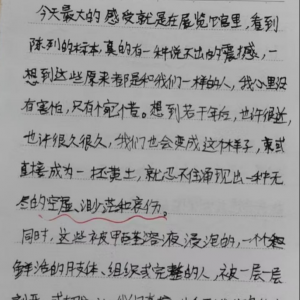 今天最大的感受就是在展览馆里,看到
陈列的标本,真的有一种说不出的震撼,一
想到这些原来都是和我们一样的人,我心里没
有害怕,只有惋惜。想到若干年后,也许很近,
也许很久很久,我们也会变成这种样子,或
直接成为一抔黄土,就忍不住涌现出一种无
尽的空虚、渺茫和哀伤。
同时,这些被甲醛溶液浸泡的,一个个
鲜活的肢体、组织或完整的人,被一层一层